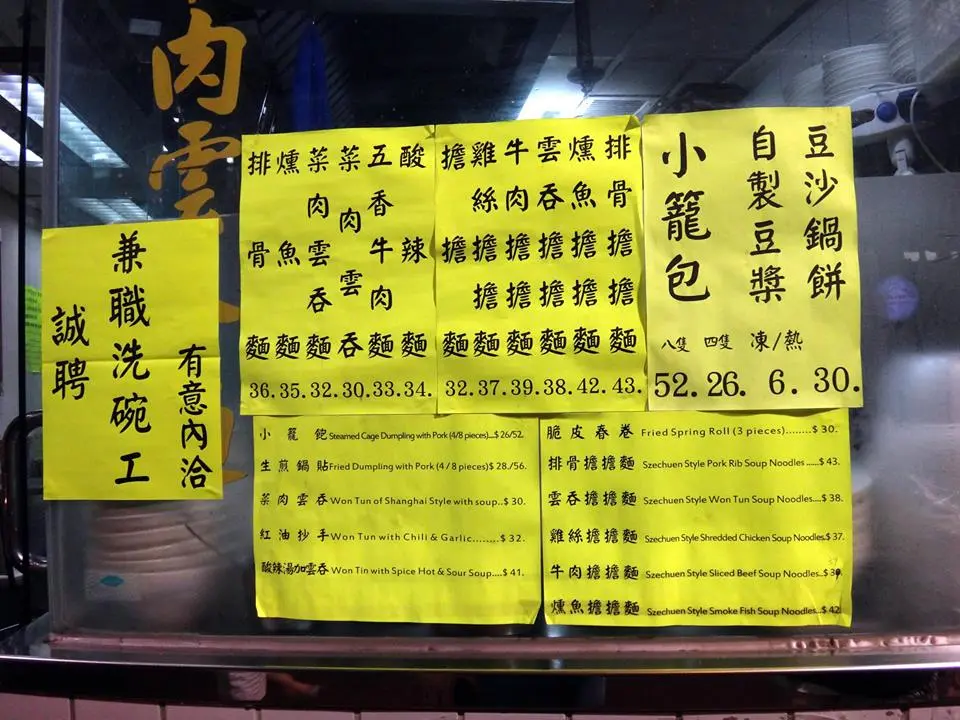 肉雲
誠聘
兼職洗碗工
有意內洽
排骨麵 36.
燻魚麵 35.
菜肉雲吞麵 32.
菜肉雲吞 30.
五香牛肉麵 33.
酸辣麵 34.
擔擔麵 32.
雞絲擔擔麵 37.
牛肉擔擔麵 39.
雲吞擔擔麵 38.
燻魚擔擔麵 42.
排骨擔擔麵 43.
小籠包 八隻 52. 四隻 26.
自製豆漿 凍/熱 6.
豆沙鍋餅 30.
小籠飽 Steamed Cage Dumpling with Pork (4/8 pieces)...$ 26/52.
生煎鍋貼 Fried Dumpling with Pork (4 / 8 pieces)$ 28./56.
菜肉雲吞 Won Tun of Shanghai Style with soup..$ 30.
紅油抄手 Won Tun with Chili & Garlic........$ 32.
酸辣湯加雲吞 Won Tin with Spice Hot & Sour Soup....$ 41.
脆皮春卷 Fried Spring Roll (3 pieces)........$ 30.
排骨擔擔麵 Szechuen Style Pork Rib Soup Noodles .....$ 43.
雲吞擔擔麵 Szechuen Style Won Tun Soup Noodles....$ 38.
雞絲擔擔麵 Szechuen Style Shredded Chicken Soup Noodles.$ 37.
牛肉擔擔麵 Szechuen Style Sliced Beef Soup Noodles..$
燻魚擔擔麵 Szechuen Style Smoke Fish Soup Noodles...$ 42